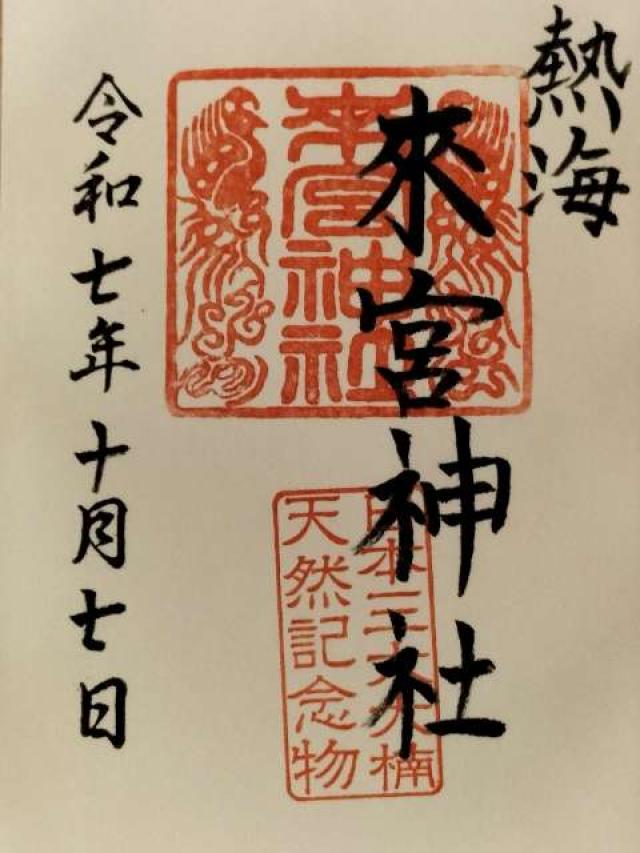 熱海
來宮神社
來宮神社
日本三大大楠
天然記念物
令和七年十月七日